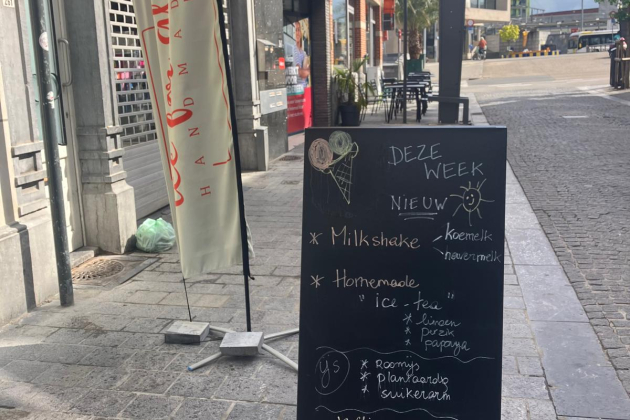 DEZE
WEEK
NIEUW
* Milkshake
koemelk
havermelk
* Homemade
"ice-tea"
* limoen
* perzik
* papaya
ys
* ROOMIJS
* plantaardig
* suikerarm
HANDMAD